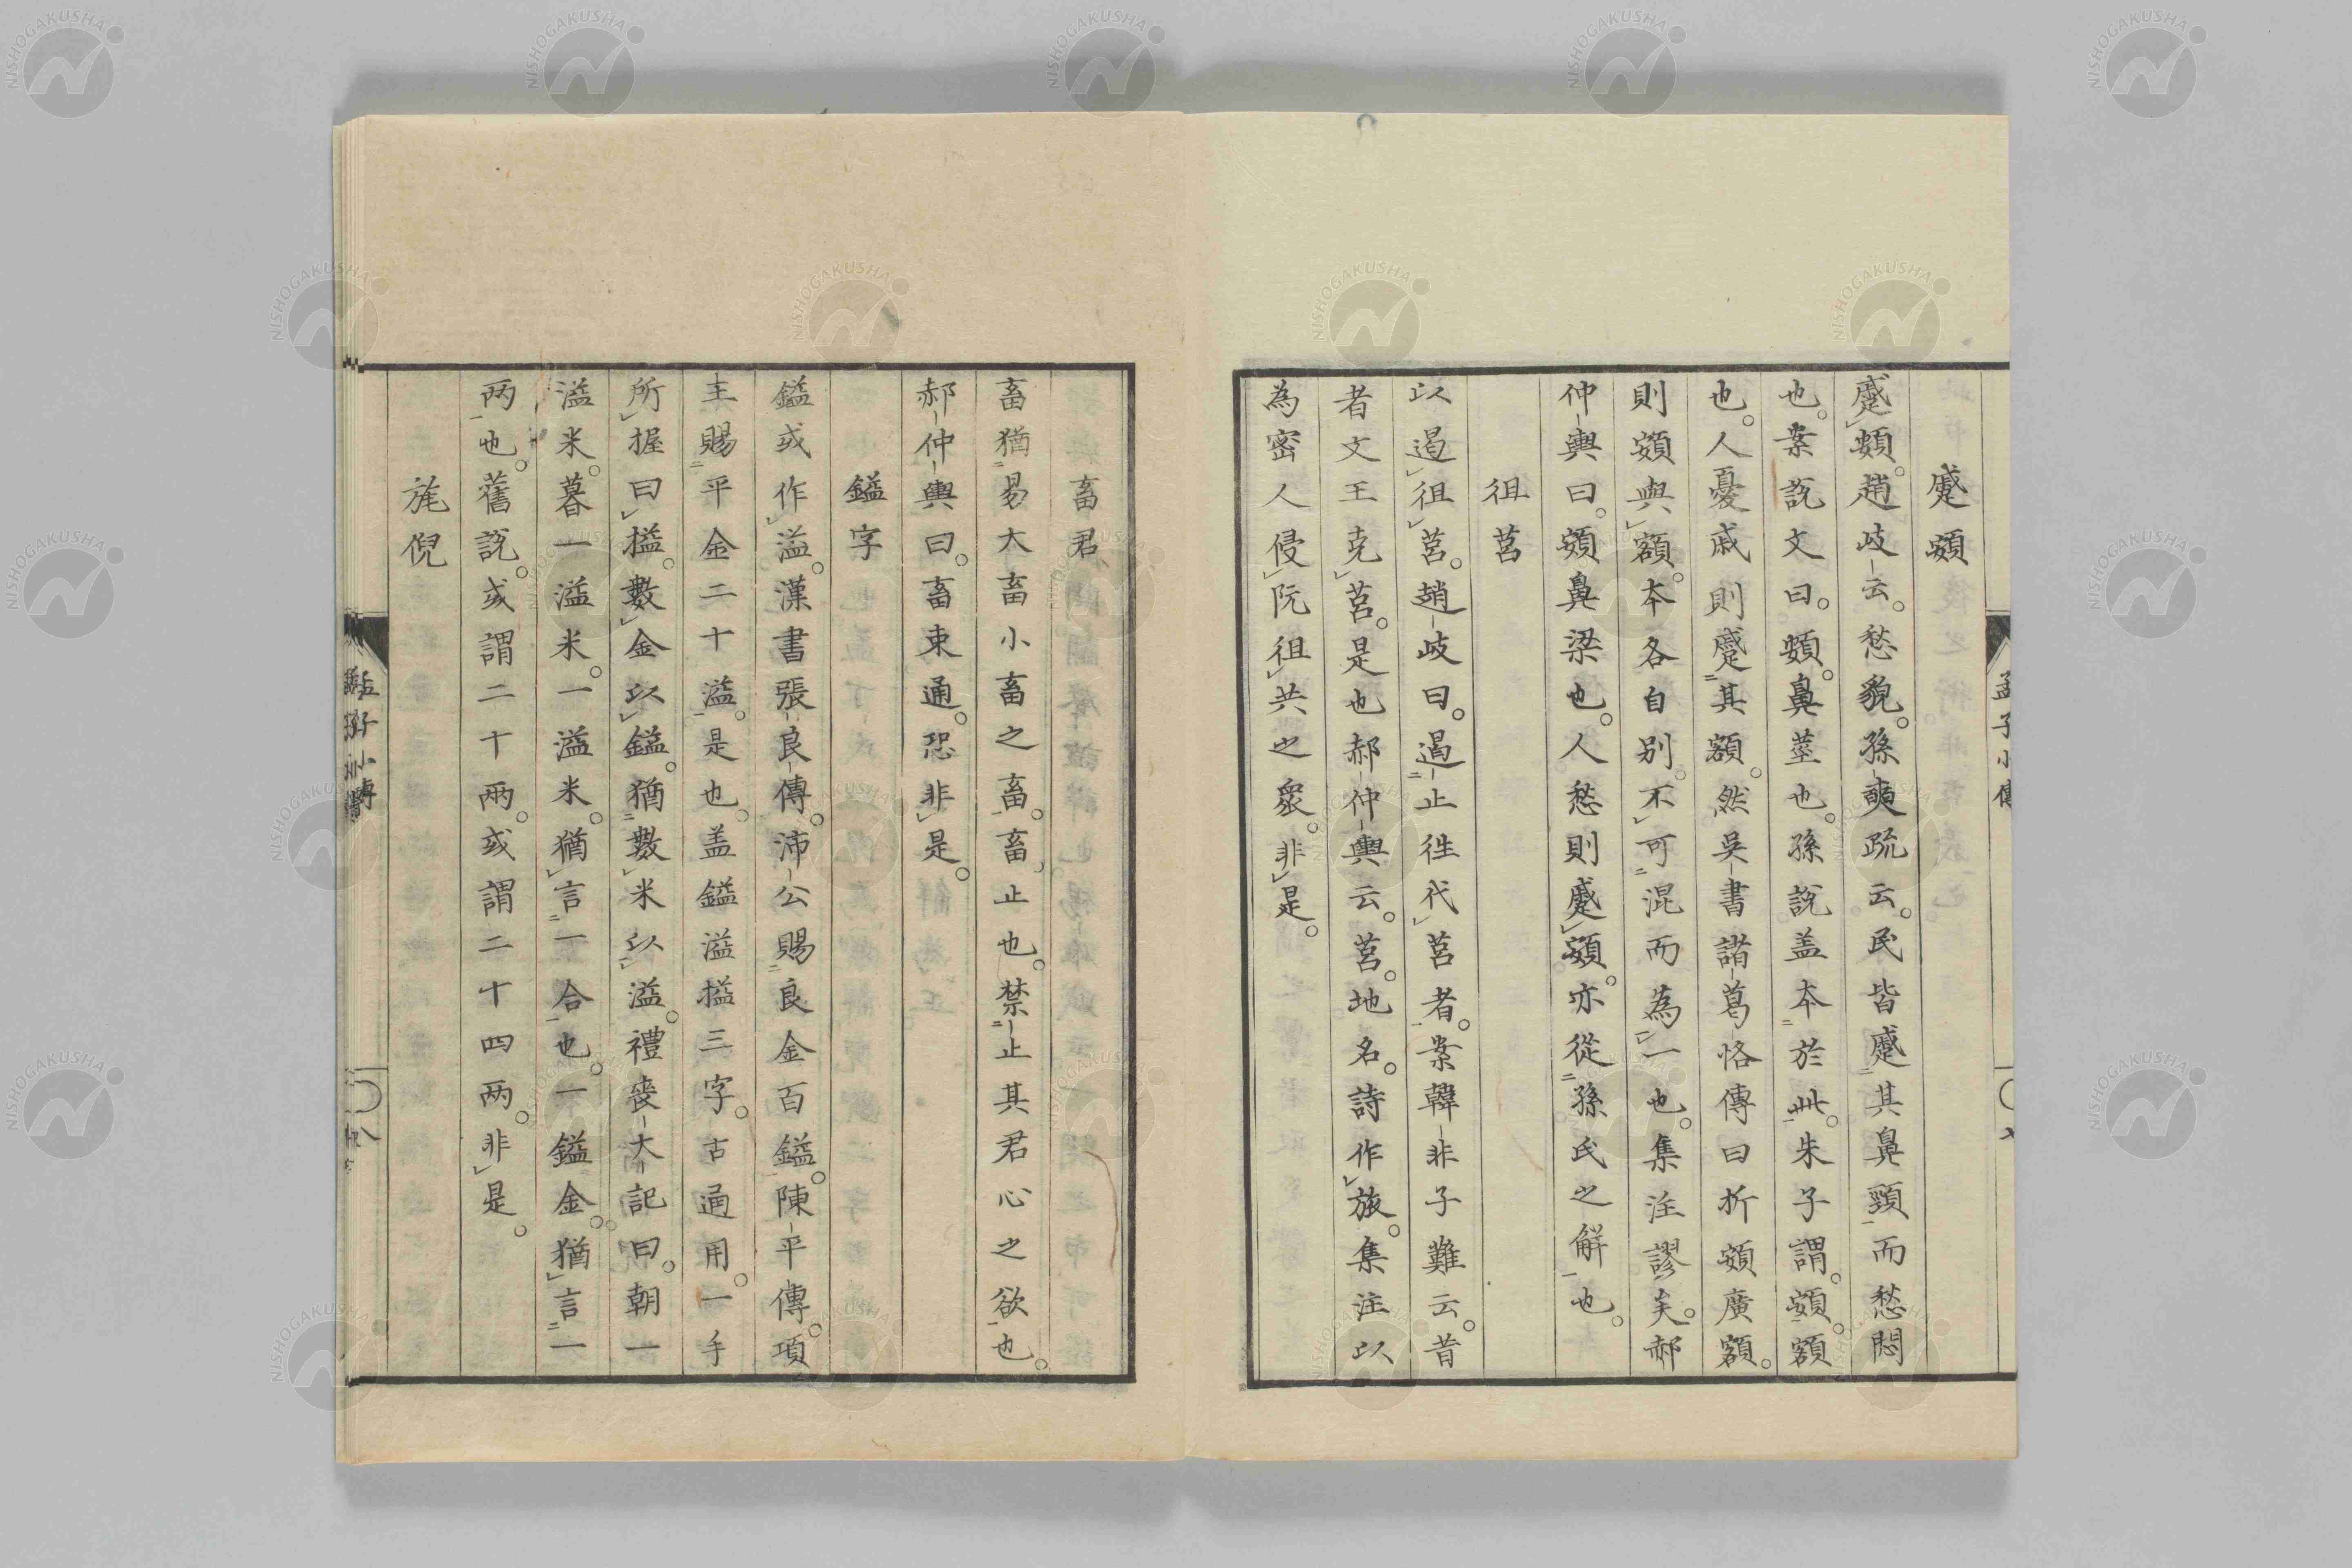 蹙頞
蹙頞。趙岐云。愁貌。孫奭疏云。民皆蹙其鼻頸而愁悶
也。案説文曰。頞。鼻莖也。孫説盖本於此。朱子謂。頞。額
也。人憂戚則蹙其額。然吳書諸葛恪傳曰折頞廣額。
則頞與額。本各自別。不可混而為一也。集注謬矣。郝
仲輿曰。頞鼻梁也。人愁則蹙頞。亦從孫氏之解也。
徂莒
以遏徂莒。趙岐曰。遏止徃代莒者。案韓非子難云。昔
者文王克莒。是也郝仲輿云。莒。地名。詩作旅。集注以
為密人侵阮徂共之衆。非是。
孟子小傳
畜君
畜猶易大畜小畜之畜。畜止也。禁止其君心之欲也。
郝仲輿曰。畜束通。恐非是。
鎰字
鎰或作溢。漢書張良傳。沛公賜良金百鎰。陳平傳。項
王賜平金二十溢。是也。盖鎰溢搤三字。古通用。一手
所握曰搤。數金以鎰。猶數米以溢。禮喪大記曰。朝一
溢米。暮一溢米。一溢米。猶言一合也。一鎰金。猶言一
两也。舊説。或謂二十兩。或謂二十四两。非是。
旄倪
孟子小傳
八